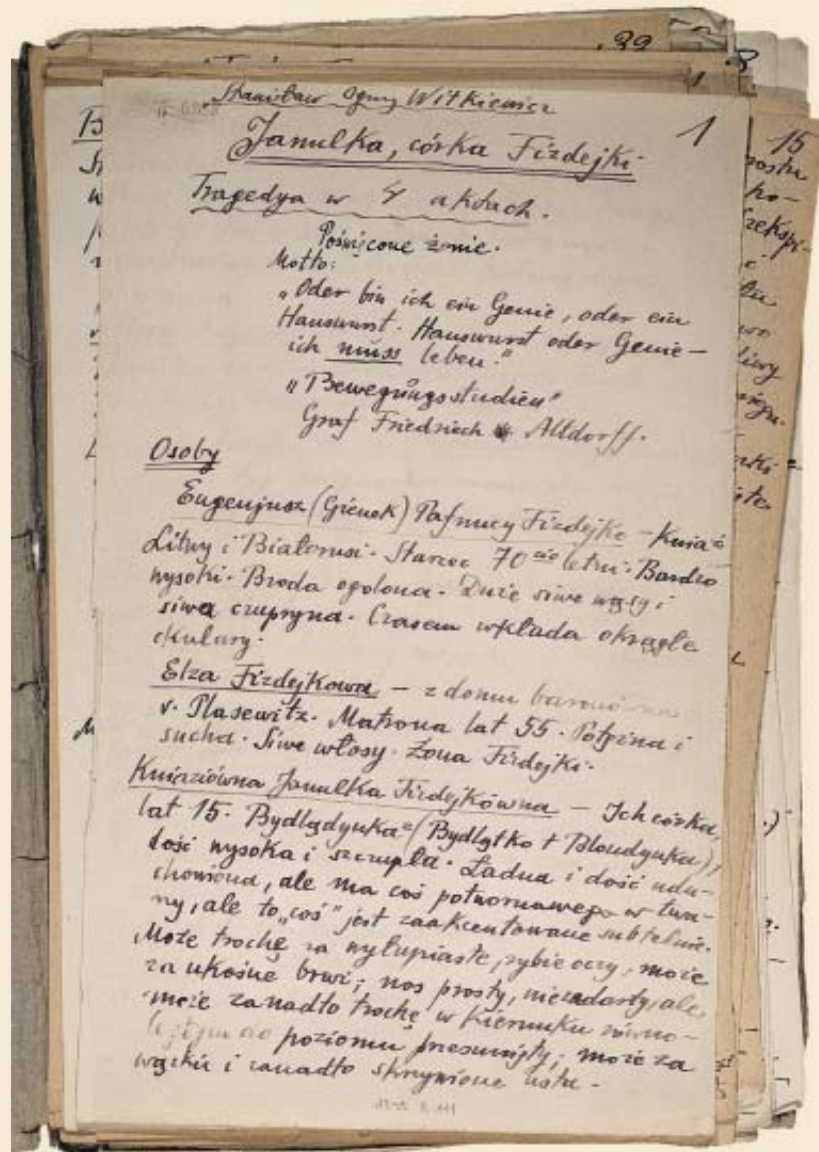 Stanisław Ignacy Witkiewicz
1
Janulka, córka Fizdejki.
Tragedya w 4 aktach.
Poświęcone żonie.
Motto:
"Oder bin ich ein Genie, oder ein
Hanswurst. Hanswurst oder Genie —
ich muss leben."
"Bewegungsstudien"
Graf Friedrich Alldorff.
Osoby
Eugenjusz (Gienek) Pafnucy Fizdejko — Kniaź
Litwy i Białorusi. Starzec 70cio letni. Bardzo
wysoki. Broda ogolona. Duże siwe wąsy i
siwa czupryna. Czasem wkłada okrągłe
okulary.
Elza Fizdejkowa — z domu baronówna
v. Plasewitz. Matrona lat 55. Potężna i
sucha. Siwe włosy. Żona Fizdejki.
Kniaziówna Janulka Fizdejkówna — Ich córka,
lat 15. Bydlądynka = (Bydlątko + Blondynka),
dość wysoka i szczupła. Ładna i dość udu-
chowiona, ale ma coś potwornawego w twa-
rzy, ale to „coś" jest zaakcentowane subtelnie.
Może trochę za wyłupiaste, rybie oczy, może
za ukośne brwi; nos prosty, niezadarty, ale
może zanadto trochę w kierunku równo-
ległym do poziomu przesunięty; może za
wązkie i zanadto skrzywione usta.
15